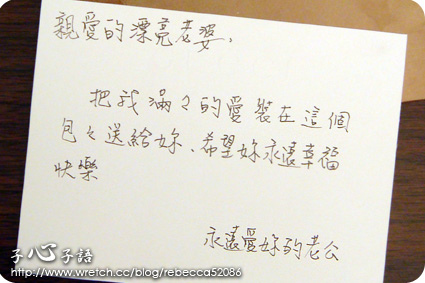 親愛的漂亮老婆,
把我滿々的愛裝在這個
包々送給妳、希望妳永遠幸福
快樂
永遠愛妳的老公
子心子語
http://www.wretch.cc/blog/rebecca52086